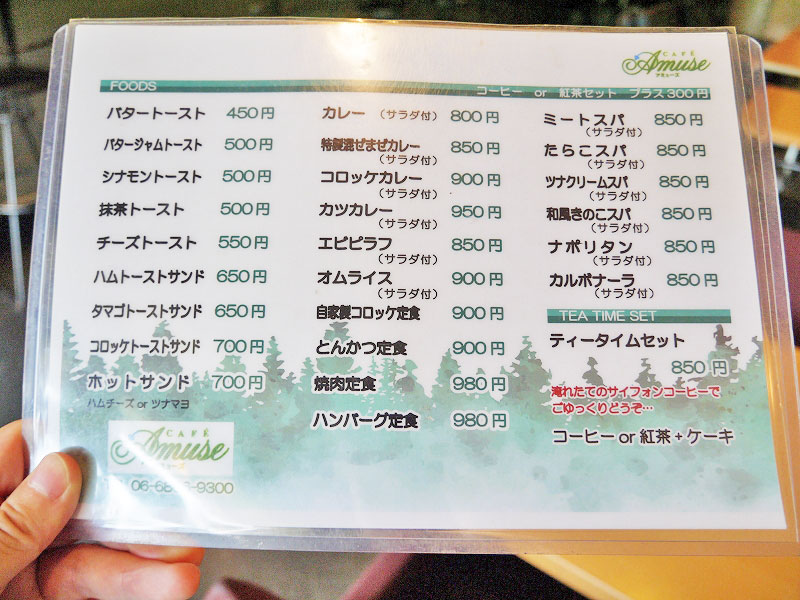 CAFÉ
Amuse
アミューズ
FOODS
コーヒー or 紅茶セット プラス300円
バタートースト 450円
バタージャムトースト 500円
シナモントースト 500円
抹茶トースト 500円
チーズトースト 550円
ハムトーストサンド 650円
タマゴトーストサンド 650円
コロッケトーストサンド 700円
ホットサンド 700円
ハムチーズ or ツナマヨ
CAFÉ
Amuse
カレー (サラダ付) 800円
特製混ぜまぜカレー 850円
(サラダ付)
コロッケカレー 900円
(サラダ付)
カツカレー 950円
(サラダ付)
エビピラフ 850円
(サラダ付)
オムライス 900円
(サラダ付)
自家製コロッケ定食 900円
とんかつ定食 900円
焼肉定食 980円
ハンバーグ定食 980円
ミートスパ 850円
(サラダ付)
たらこスパ 850円
(サラダ付)
ツナクリームスパ 850円
(サラダ付)
和風きのこスパ 850円
(サラダ付)
ナポリタン 850円
(サラダ付)
カルボナーラ 850円
(サラダ付)
TEA TIME SET
ティータイムセット
850円
淹れたてのサイフォンコーヒーで
ごゆっくりどうぞ…
コーヒー or 紅茶+ケーキ